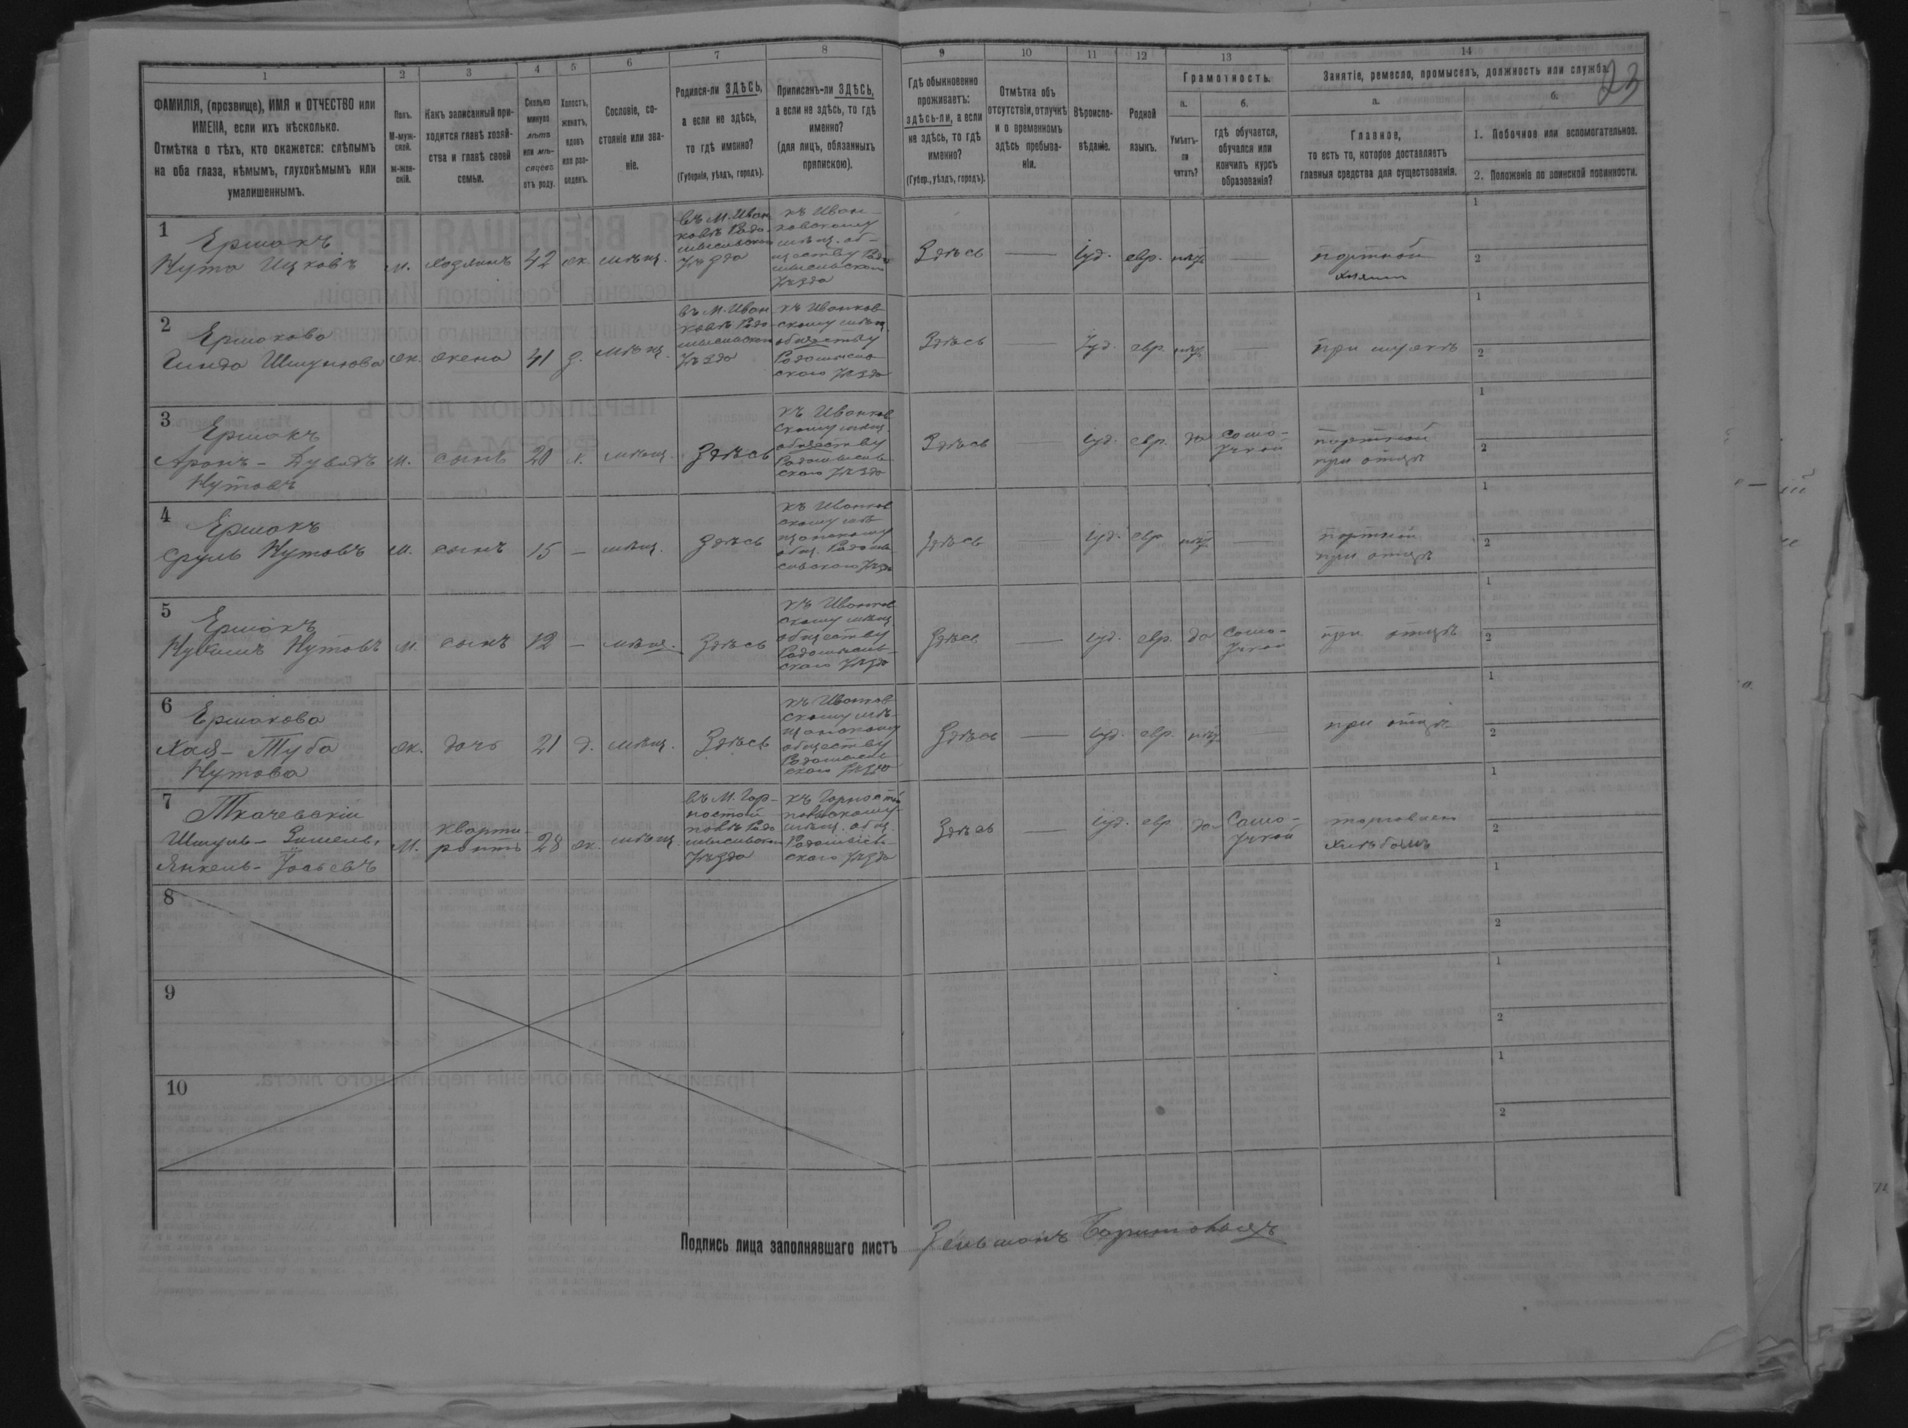 23
1 2 3 4 5 6 7 8 9 10 11 12 13 14
ФАМИЛІЯ, (прозвище), ИМЯ и ОТЧЕСТВО или
ИМЕНА, если ихъ нѣсколько.
Отмѣтка о тѣхъ, кто окажется: слѣпымъ
на оба глаза, нѣмымъ, глухонѣмымъ или
умалишеннымъ.
Полъ.
М-муж-
ской.
Ж-жен-
скій.
Какъ записанный при-
ходится главѣ хозяй-
ства и главѣ своей
семьи.
Сколько
минуло
лѣтъ
или мѣ-
сяцевъ
отъ роду.
Холостъ,
женатъ,
вдовъ
или раз-
веденъ.
Сословіе, со-
стояніе или зва-
ніе.
Родился-ли ЗДѢСЬ,
а если не здѣсь,
то гдѣ именно?
(Губернія, уѣздъ, городъ).
Приписанъ-ли ЗДѢСЬ,
а если не здѣсь, то гдѣ
именно?
(для лицъ, обязанныхъ
припискою).
Гдѣ обыкновенно
проживаетъ:
здѣсь-ли, а если
не здѣсь, то гдѣ
именно?
(Губер., уѣздъ, городъ).
Отмѣтка объ
отсутствіи, отлучкѣ
и о временномъ
здѣсь пребыва-
ніи.
Вѣроиспо-
вѣданіе.
Родной
языкъ.
Грамотность.
а.
Умѣетъ-
ли
читать?
б.
гдѣ обучается,
обучался или
кончилъ курсъ
образованія?
Занятіе, ремесло, промыселъ, должность или служба.
а.
Главное,
то есть то, которое доставляетъ
главныя средства для существованія.
б.
1. Побочное или вспомогательное.
2. Положеніе по воинской повинности.
1
Ершокъ
Нута Ицковъ
м.
хозяинъ
42
ж.
мѣщ.
въ М. Иван
ковѣ Радо-
мысльскаго
Уѣзда
къ Иван-
ковскому
мѣщ. об-
ществу Радо
мысльскаго
Уѣзда
Здѣсь
—
Іуд.
евр.
нѣтъ
—
портной
хозяинъ
1
2
2
Ершокова
Гинда Шмулова
ж.
жена
41
з.
мѣщ.
въ М. Иван
ковѣ Радо-
мысльскаго
Уѣзда
къ Иванков-
скому мѣщ.
обществу
Радомысль-
скаго Уѣзда
Здѣсь
—
Іуд.
евр.
нѣтъ
—
при мужѣ
1
2
3
Ершокъ
Аронъ-Дувидъ
Нутовъ
м.
сынъ
20
х.
мѣщ.
Здѣсь
къ Иванков
скому мѣщ.
обществу
Радомысль-
скаго Уѣзда
Здѣсь
—
Іуд.
евр.
да
само-
учкой
портной
при отцѣ
1
2
4
Ершокъ
Сруль Нутовъ
м.
сынъ
15
—
мѣщ.
Здѣсь
къ Иванков
скому мѣ
щанскому
общ. Радомы
сльскаго Уѣзда
Здѣсь
—
Іуд.
евр.
нѣтъ
—
портной
при отцѣ
1
2
5
Ершокъ
Нутовъ
м.
сынъ
12
—
мѣщ.
Здѣсь
къ Иванков
скому мѣщ
обществу
Радомысль-
скаго Уѣзда
Здѣсь
—
Іуд.
евр.
да
само-
учкой
при отцѣ
1
2
6
Ершокова
Хая-Туба
Нутова
ж.
дочь
21
д.
мѣщ.
Здѣсь
къ Иванков
скому мѣ-
щанскому
обществу
Радомысль-
скаго Уѣзда
Здѣсь
—
Іуд.
евр.
нѣтъ
—
при отцѣ
1
2
7
Ткачевскій
Шмуль-Зишель,
Янкель-Іосьевъ
м.
кварти-
рантъ
28
ж.
мѣщ.
въ М. Гор-
ностай
повѣ Радо
мысльскаго
Уѣзда
къ Горностай
повскому
мѣщ. общ.
Радомысль-
скаго Уѣзда
Здѣсь
—
Іуд.
евр.
да
само-
учкой
торговецъ
хлѣбомъ
1
2
8
1
2
9
1
2
10
1
2
Подпись лица заполнявшаго листъ